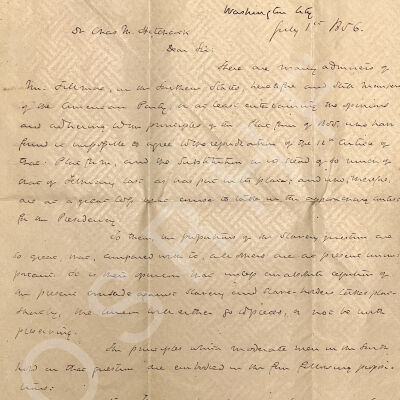 Washington City
July 1st 1856.
Dr Chas M. Hitchcock
Dear Sir:
There are many admirers of
Mr. Fillmore, in the Southern States, heretofore and still members
of the American Party, or at least entertaining the opinions
and adhering to the principles of the Platform of 1855, who have
found it impossible to agree to the repudiation of the 12th Article of
that Platform, and the substitution in its stead of so much of
that of February last, as was put in its place; and now, therefore,
are at a great loss what course to take in the approaching contest
for the Presidency.
To them, the proportions of the Slavery question are
so great, that, compared with it, all others are at present unim-
portant. It is their opinion that unless an absolute
of the present crusade against Slavery and Slave-holders takes place
shortly, the Union will either go to pieces, or not be worth
preserving.
The principles which moderate men in the South
hold on that question are embodied in the few following propo-
sitions: